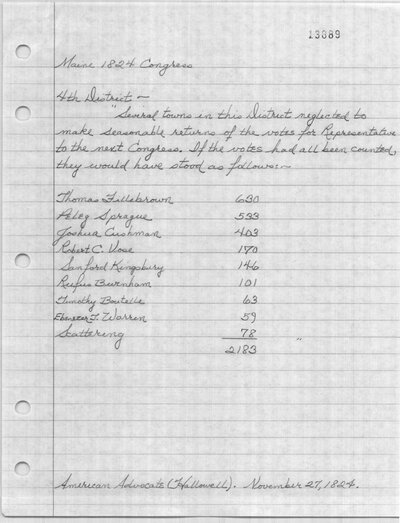 13389
Maine 1824 Congress
4th District —
"Several towns in this District neglected to
make seasonable returns of the votes for Representative
to the next Congress. If the votes had all been counted,
they would have stood as follows:—
Thomas Fillebrown 630
Peleg Sprague 533
Joshua Cushman 403
Robert C. Vose 170
Sanford Kingsbury 146
Rufus Burnham 101
Timothy Boutelle 63
Ebenezer T. Warren 59
Scattering 78 "
2183
American Advocate (Hallowell). November 27, 1824.